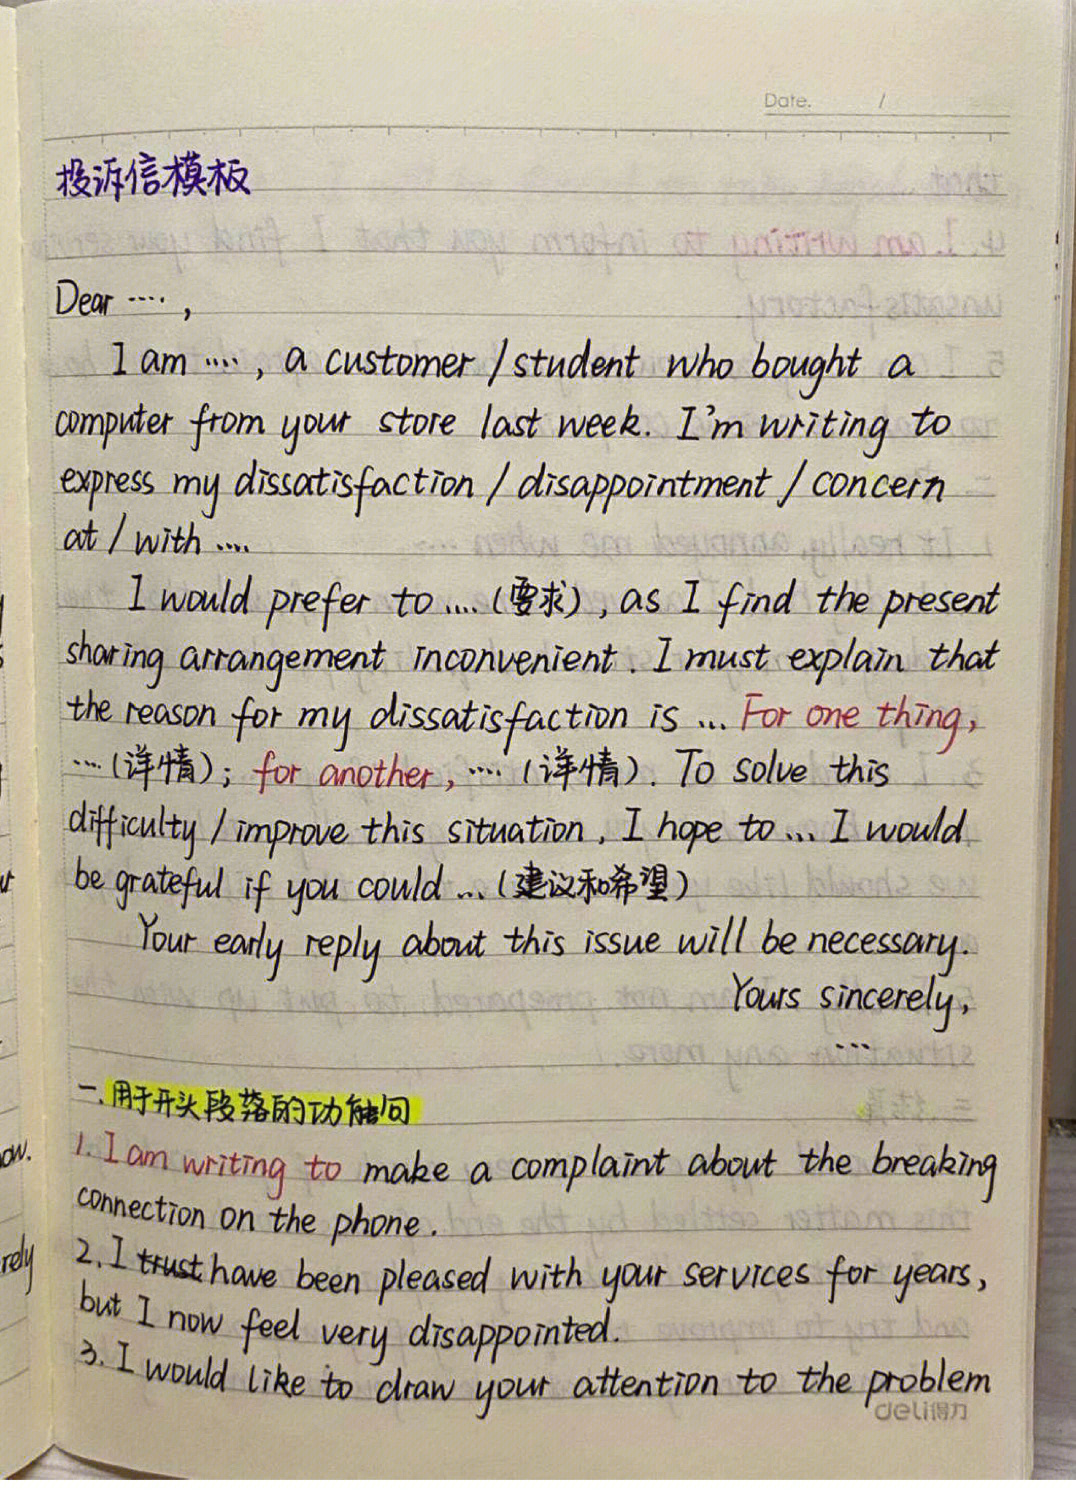 Date. /
投诉信模板
Dear ....,
I am ...., a customer / student who bought a
computer from your store last week. I'm writing to
express my dissatisfaction / disappointment / concern
at / with ....
I would prefer to .... (要求), as I find the present
sharing arrangement inconvenient. I must explain that
the reason for my dissatisfaction is ... For one thing,
... (详情); for another, .... (详情). To solve this
difficulty / improve this situation, I hope to ... I would
be grateful if you could ... (建议和希望)
Your early reply about this issue will be necessary.
Yours sincerely,
...
一. 用于开头段落的功能句
1. I am writing to make a complaint about the breaking
connection on the phone.
2. I trust have been pleased with your services for years,
but I now feel very disappointed.
3. I would like to draw your attention to the problem
deli得力
ow.
rely